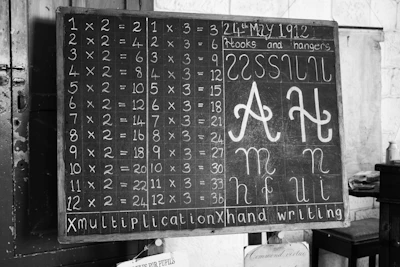 1 × 2 = 2
2 × 2 = 4
3 × 2 = 6
4 × 2 = 8
5 × 2 = 10
6 × 2 = 12
7 × 2 = 14
8 × 2 = 16
9 × 2 = 18
10 × 2 = 20
11 × 2 = 22
12 × 2 = 24
1 × 3 = 3
2 × 3 = 6
3 × 3 = 9
4 × 3 = 12
5 × 3 = 15
6 × 3 = 18
7 × 3 = 21
8 × 3 = 24
9 × 3 = 27
10 × 3 = 30
11 × 3 = 33
12 × 3 = 36
24th May 1912
Hooks and hangers
A H
m n
h f u i
XmultiplicationXhand writing